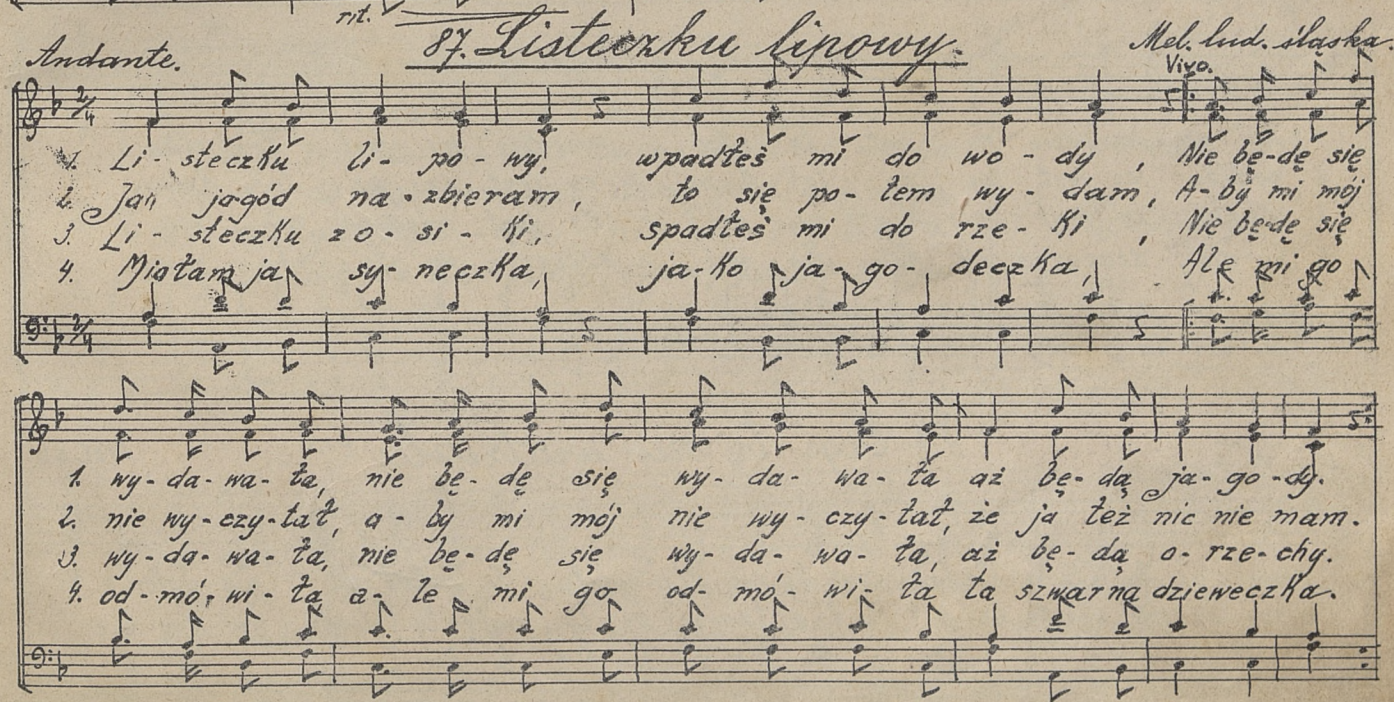 rit.
87. Listeczku lipowy.
Andante.
Mel. lud. śląska
Vivo.
2/4
1. Li - steczku li - po - wy, wpadłeś mi do wo - dy, Nie bę - dę się
2. Jak jagód na - zbieram, to się po - tem wy - dam, A - by mi mój
3. Li - steczku z o - si - ki, spadłeś mi do rze - ki, Nie bę - dę się
4. Miałam ja sy - neczka, ja - ko ja - go - deczka, Ale mi go
2/4
1. wy - da - wa - ła, nie bę - dę się wy - da - wa - ła aż bę - dą ja - go - dy.
2. nie wy - czy - tał, a - by mi mój nie wy - czy - tał, że ja też nic nie mam.
3. wy - da - wa - ła, nie bę - dę się wy - da - wa - ła, aż bę - dą o - rze - chy.
4. od - mó - wi - ła a - le mi go od - mó - wi - ła ta szwarna dzieweczka.